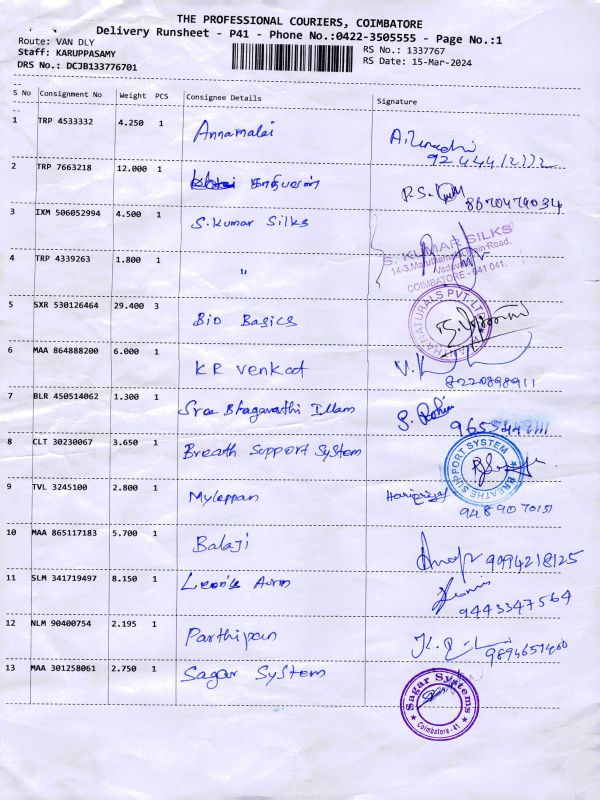 THE PROFESSIONAL COURIERS, COIMBATORE
Delivery Runsheet - P41 - Phone No.:0422-3505555 - Page No.:1
Route: VAN DLY RS No.: 1337767
Staff: KARUPPASAMY RS Date: 15-Mar-2024
DRS No.: DCJB133776701
S No Consignment No Weight PCS Consignee Details Signature
1 TRP 4533332 4.250 1 Annamalai
2 TRP 7663218 12.000 1 கதிபவரன் 8670479034
3 IXM 506052994 4.500 1 S.Kumar Silks
S. KUMAR SILKS
COIMBATORE - 641 041.
4 TRP 4339263 1.800 1 "
5 SXR 530126464 29.400 3 Bio Basics
NATURALS PVT LTD
6 MAA 864888200 6.000 1 KR Venkat
8220898911
7 BLR 450514062 1.300 1 Sree Bhagavathi Illam
8 CLT 30230067 3.650 1 Breath Support System
BREATHE SUPPORT SYSTEM
9 TVL 3245100 2.800 1 Myleppan Haripriya
9489070151
10 MAA 865117183 5.700 1 Balaji 9094218125
11 SLM 341719497 8.150 1
9443347564
12 NLM 90400754 2.195 1 Parthipan
13 MAA 301258061 2.750 1 Sagar System
Sagar Systems
Coimbatore - 41